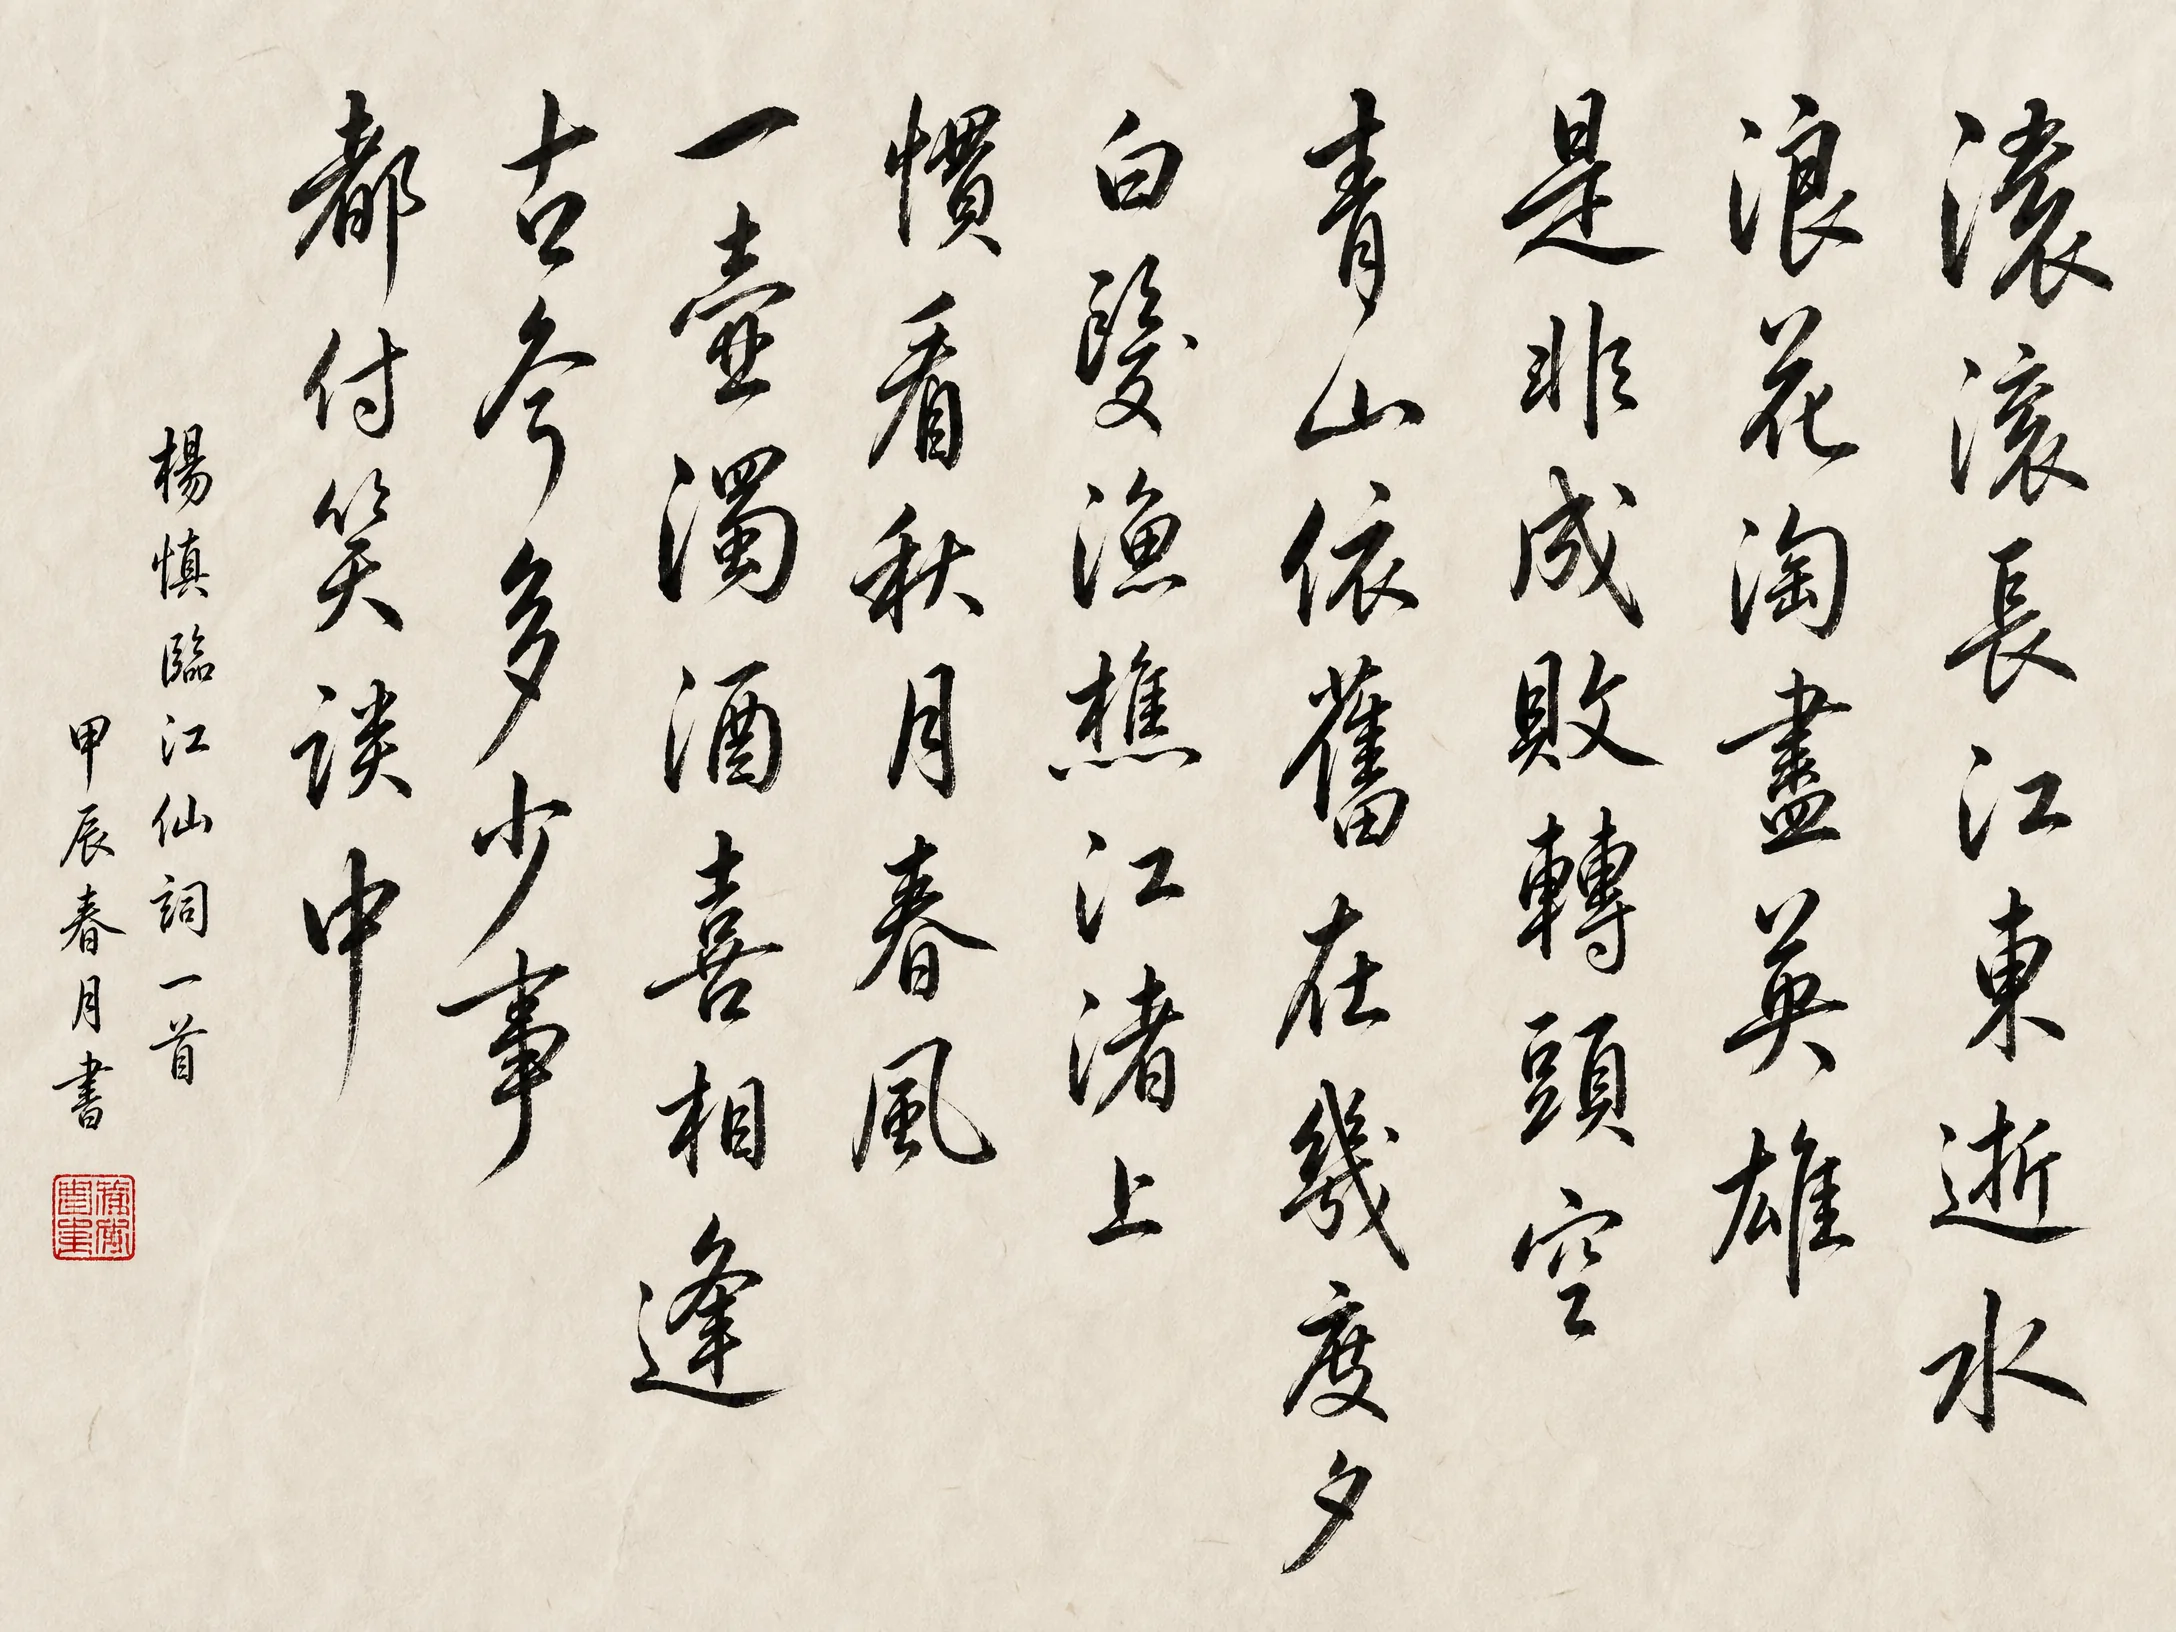 滾滾長江東逝水
浪花淘盡英雄
是非成敗轉頭空
青山依舊在幾度夕
白髮漁樵江渚上
慣看秋月春風
一壺濁酒喜相逢
古今多少事
都付笑談中
楊慎臨江仙詞一首
甲辰春月書